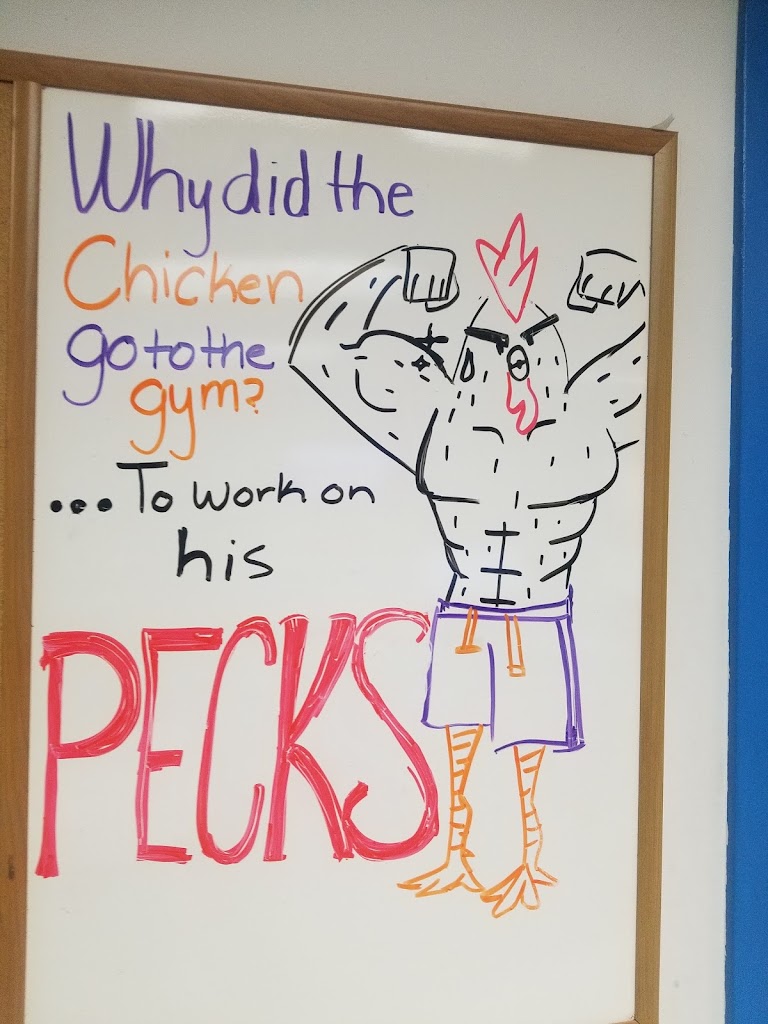 Why did the
Chicken
go to the
gym?
...To work on
his
PECKS